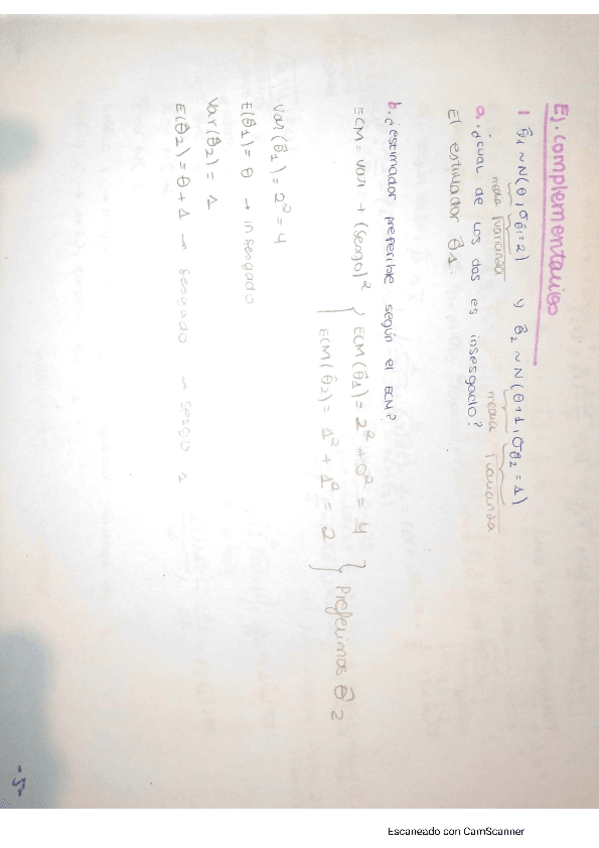 Ej. complementario
1 θ̂1 ~ N(θ, σθ̂1=2) y θ̂2 ~ N(θ+1, σθ̂2=1)
media √varianza media √varianza
a. ¿cual de los dos es insesgado?
El estimador θ̂1.
b. ¿estimador preferible según el ECM?
ECM = var + (sesgo)² { ECM(θ̂1) = 2² + 0² = 4
ECM(θ̂2) = 1² + 1² = 2 } Preferimos θ̂2
Var(θ̂1) = 2² = 4
E(θ̂1) = θ → insesgado
Var(θ̂2) = 1
E(θ̂2) = θ+1 → sesgado → sesgo 1
-5-
Escaneado con CamScanner